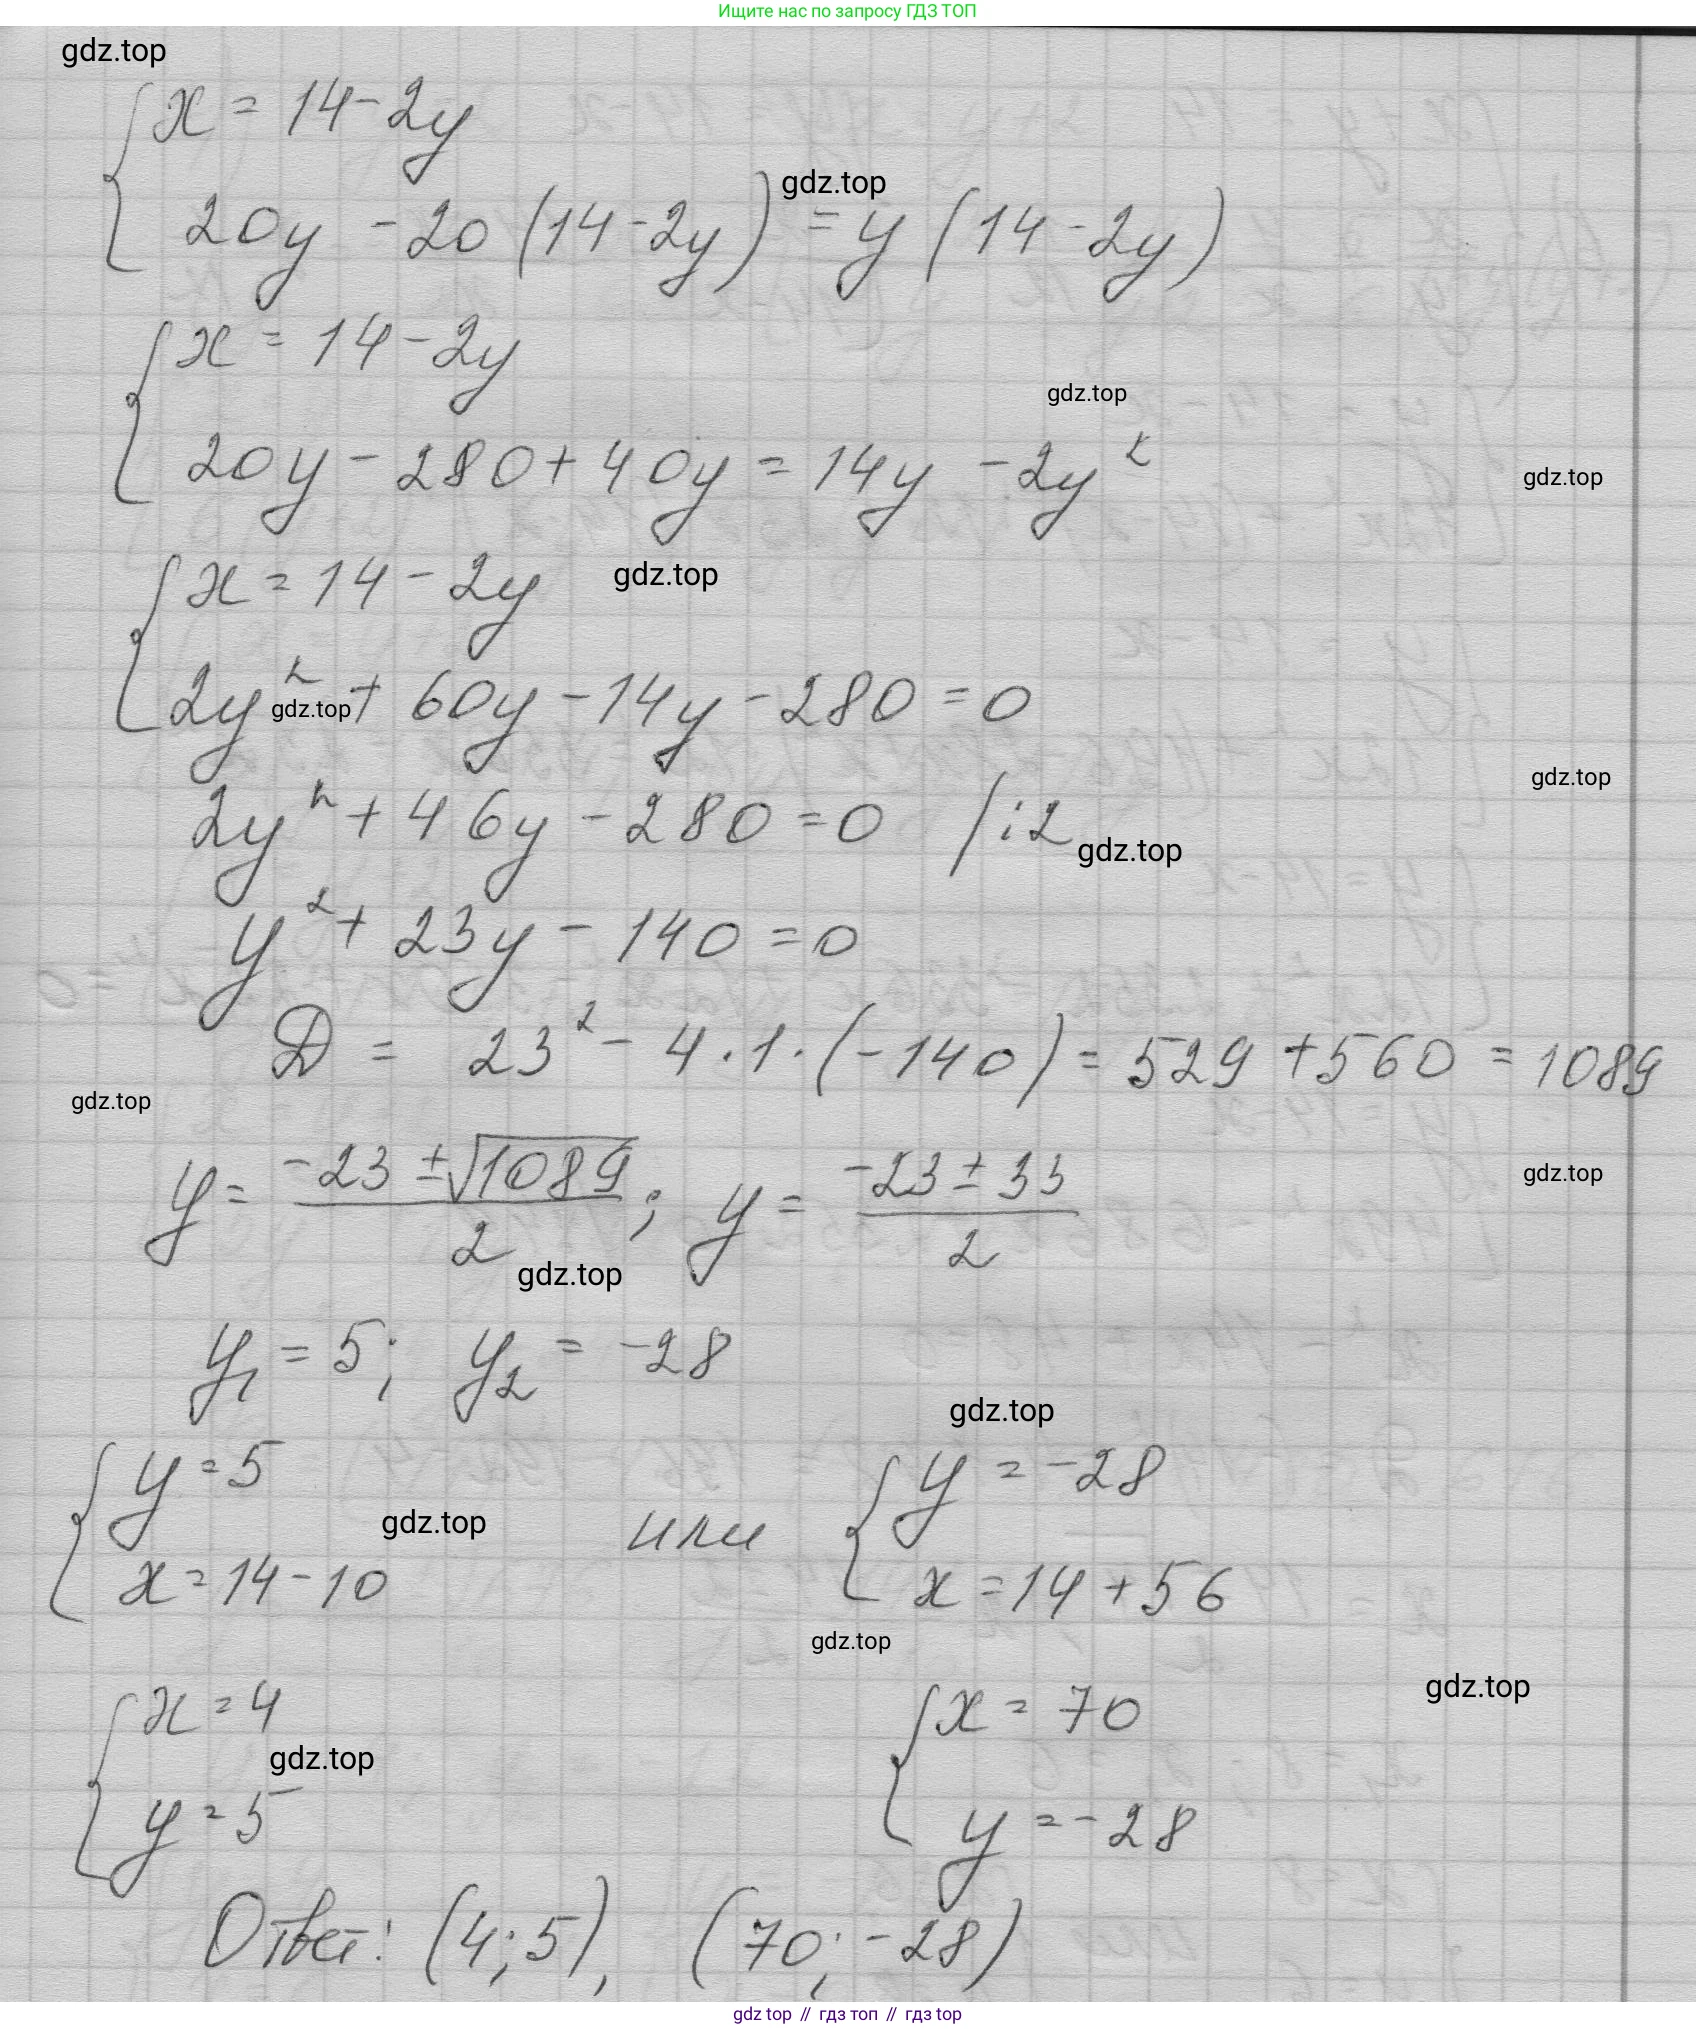 Ищите нас по запросу ГДЗ ТОП
gdz.top
x = 14 - 2y
gdz.top
20y - 20 (14 - 2y) = y (14 - 2y)
x = 14 - 2y
gdz.top
20y - 280 + 40y = 14y - 2y²
gdz.top
x = 14 - 2y
gdz.top
2y² + 60y - 14y - 280 = 0
gdz.top
gdz.top
2y² + 46y - 280 = 0 /:2
gdz.top
y² + 23y - 140 = 0
D = 23² - 4 · 1 · (-140) = 529 + 560 = 1089
gdz.top
y = (-23 ± √1089)/2 ; y = (-23 ± 33)/2
gdz.top
gdz.top
y₁ = 5; y₂ = -28
gdz.top
y = 5 или y = -28
gdz.top
x = 14 - 10 x = 14 + 56
gdz.top
gdz.top
x = 4 x = 70
gdz.top
y = 5 y = -28
Ответ: (4; 5), (70; -28)
gdz top // гдз топ // гдз top